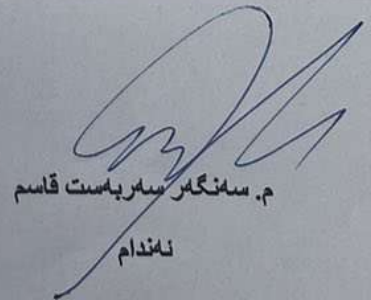 م. سەنگەر سەربەست قاسم
ئەندام